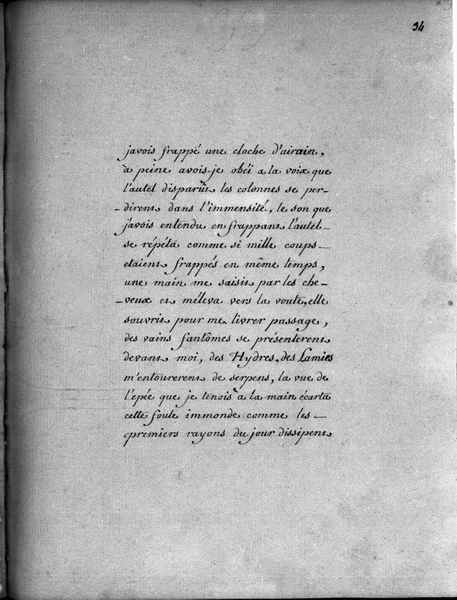 34
javois frappé une cloche d'airain,
à peine avois-je obéi a la voix que
l'autel disparût les colonnes se per-
-dirent dans l'immensité, le son que
j'avois entendu en frappant l'autel
se répéta comme si mille coups
etaient frappés en même temps,
une main me saisit par les che-
-veux et m'éleva vers la voute, elle
souvrit pour me livrer passage,
des vains fantômes se présenterent
devant moi, des Hydres, des Lamies
m'entourerent de serpens, la vue de
l'epée que je tenois a la main écarta
cette foule immonde comme les
premiers rayons du jour dissipent